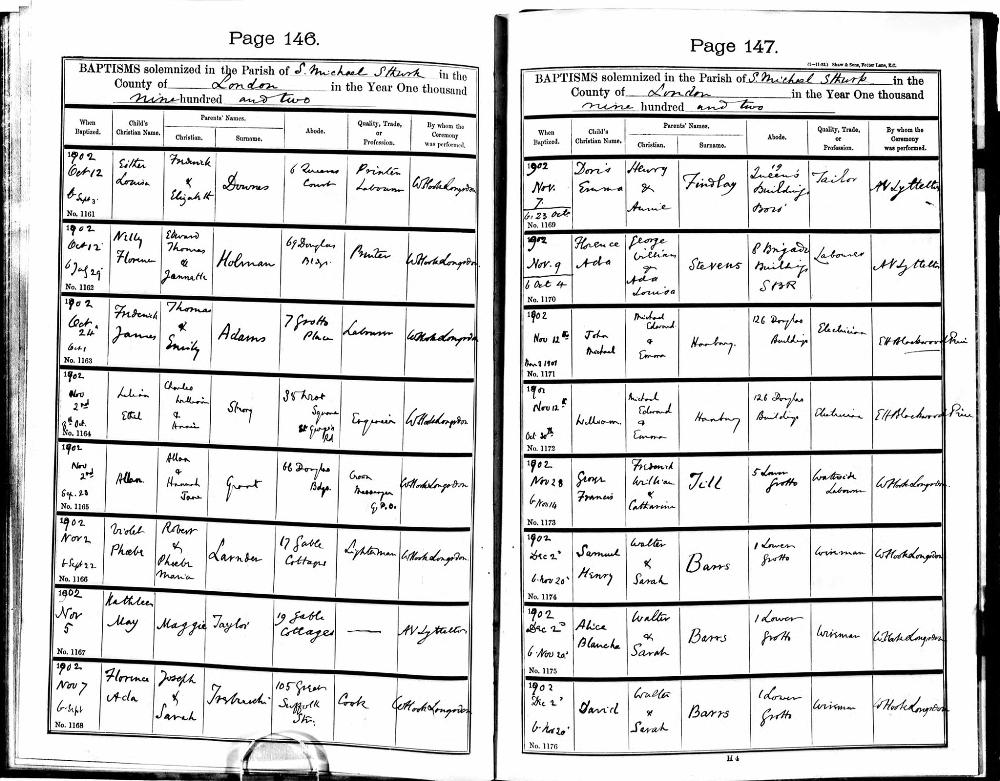 Page 146.
BAPTISMS solemnized in the Parish of S. Michael Sthwk in the
County of London in the Year One thousand
nine hundred and two
When Baptized. Child's Christian Name. Parents' Names. Christian. Surname. Abode. Quality, Trade, or Profession. By whom the Ceremony was performed.
1902
Oct 12
b Sept 3
No. 1161
Esther
Louisa
Frederick
&
Elizabeth
Downes
6 Queens
Court
Printer
Labourer
W Hook Longsdon
1902
Oct 12
No. 1162
Nelly
Florence
Edward
Thomas
&
Jannette
Holman
69 Douglas
Bldgs
Printer
W Hook Longsdon
1902
Oct
24
b Oct 1
No. 1163
Frederick
James
Thomas
&
Emily
Adams
7 Grotto
Place
Labourer
W Hook Longsdon
1902
Nov
2nd
8th Oct.
No. 1164
Lilian
Ethel
Charles
William
&
Annie
Strong
Square
St Georges
Rd
Engineer
W Hook Longsdon
1902
Nov
2nd
Sep. 28
No. 1165
Allan
Allan
&
Hannah
Jane
Grant
66 Douglas
Bdgs
Messenger
G.P.O.
W Hook Longsdon
1902
Nov 2
b Sept 22
No. 1166
Violet
Phoebe
Robert
&
Phoebe
Maria
Larnder
17 Gable
Cottages
Lighterman
W Hook Longsdon
1902
Nov
5
No. 1167
Kathleen
May
Maggie
Taylor
19 Gable
Cottages
—
AV Lyttelton
1902
Nov 7
b Sept
No. 1168
Florence
Ada
Joseph
&
Sarah
105 Great
Suffolk
Str.
Cook
W Hook Longsdon
Page 147.
(1—11-02.) Shaw & Sons, Fetter Lane, E.C.
BAPTISMS solemnized in the Parish of S. Michael Sthwk in the
County of London in the Year One thousand
nine hundred and two
When Baptized. Child's Christian Name. Parents' Names. Christian. Surname. Abode. Quality, Trade, or Profession. By whom the Ceremony was performed.
1902
Nov.
7
b. 23 Oct
No. 1169
Doris
Emma
Henry
&
Annie
Findlay
19
Queen's
Buildings
Boro'
Tailor
AV Lyttelton
1902
Nov. 9
b Oct 4
No. 1170
Florence
Ada
George
William
&
Ada
Louisa
Stevens
8 Brigade
Buildings
SBR
Labourer
AV Lyttelton
1902
Nov 12th
No. 1171
John
Michael
Michael
Edward
&
Emma
Hanbury.
126 Douglas
Buildings
Electrician
EH Blackwood Price
1902
Nov 12th
Oct 30th
No. 1172
William
Michael
Edward
&
Emma
Hanbury
126 Douglas
Buildings
Electrician
EH Blackwood Price
1902
Nov 28
b Nov 14
No. 1173
Francis
Frederick
William
&
Catharine
Till
5 Lower
Grotto
Waterside
Labourer
W Hook Longsdon
1902
Dec 2
b Nov 20
No. 1174
Samuel
Henry
Walter
&
Sarah
Barrs
1 Lower
Grotto
Wireman
W Hook Longsdon
1902
Dec 2
b Nov 20
No. 1175
Alice
Blanche
Walter
&
Sarah
Barrs
1 Lower
Grotto
Wireman
W Hook Longsdon
1902
Dec 2
b Nov 20
No. 1176
David
Walter
&
Sarah
Barrs
1 Lower
Grotto
Wireman
W Hook Longsdon
H 4